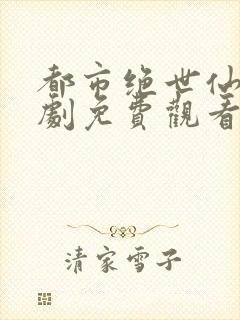 都市绝世仙
劇免費觀看
清家雪子